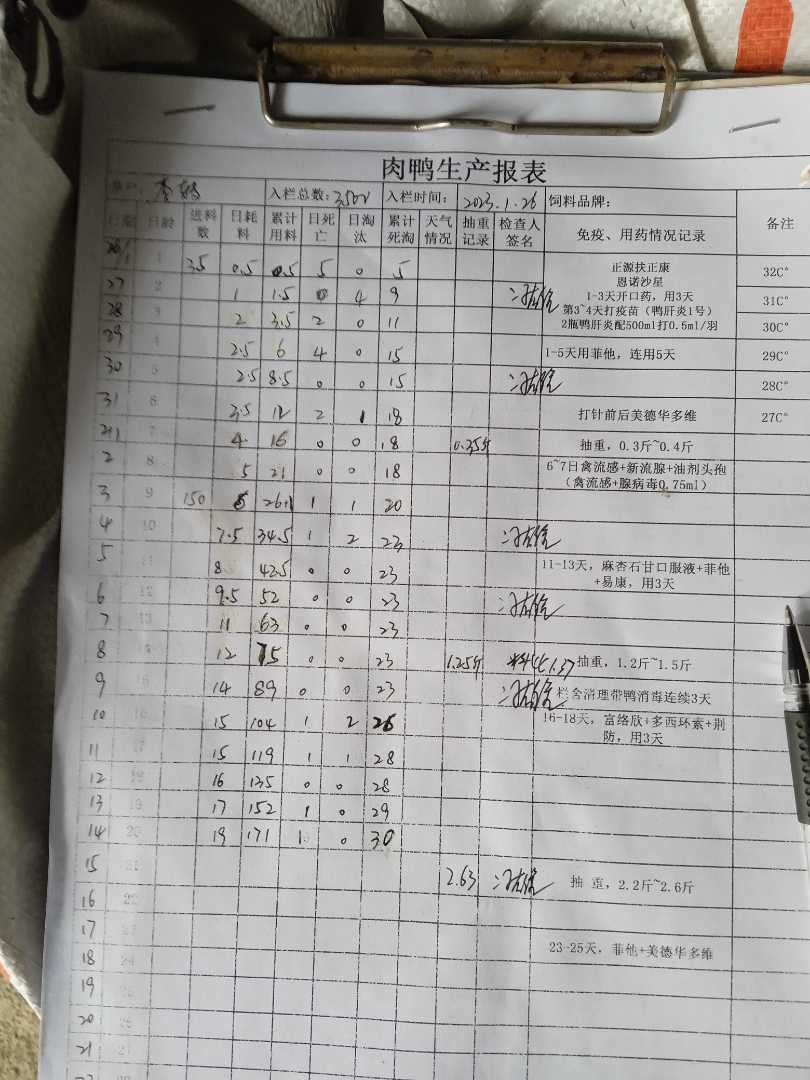 肉鸭生产报表
入栏总数: 3500 入栏时间: 2023.1.26 饲料品牌:
日期 日龄 进料数 日耗料 累计用料 日死亡 日淘汰 累计死淘 天气情况 抽重记录 检查人签名 免疫、用药情况记录 备注
26/1 1 35 0.5 0.5 5 0 5 正源扶正康 32C°
恩诺沙星
27 2 1 1.5 0 4 9 1-3天开口药，用3天 31C°
第3~4天打疫苗（鸭肝炎1号）
28 3 2 3.5 2 0 11 2瓶鸭肝炎配500ml打0.5ml/羽 30C°
29 4 2.5 6 4 0 15 1-5天用菲他，连用5天 29C°
30 5 2.5 8.5 0 0 15 28C°
31 6 3.5 12 2 1 18 打针前后美德华多维 27C°
2/1 7 4 16 0 0 18 0.35斤 抽重，0.3斤~0.4斤
2 8 5 21 0 0 18 6~7日禽流感+新流腺+油剂头孢
（禽流感+腺病毒0.75ml）
3 9 150 1 1 20
4 10 7.5 34.5 1 2 23
5 11 8 42.5 0 0 23 11-13天，麻杏石甘口服液+菲他
+易康，用3天
6 12 9.5 52 0 0 23
7 13 11 63 0 0 23
8 14 12 75 0 0 23 1.25斤 抽重，1.2斤~1.5斤
9 15 14 89 0 0 23 栏舍清理带鸭消毒连续3天
10 16 15 104 1 2 26 16-18天，富络欣+多西环素+荆
防，用3天
11 17 15 119 1 1 28
12 18 16 135 0 0 28
13 19 17 152 1 0 29
14 20 19 171 1 0 30
15 21 2.63 抽 重，2.2斤~2.6斤
16 22
17 23
18 24 23-25天，菲他+美德华多维
19 25
20 26
21 27